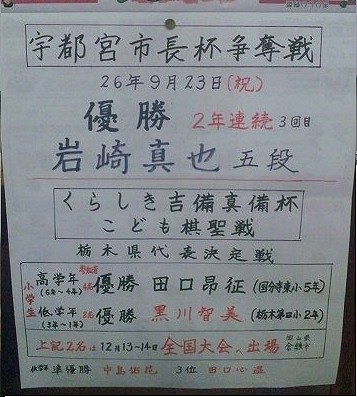 宇都宮市長杯争奪戦
26年9月23日(祝)
優勝 2年連続 3回目
岩崎真也 五段
くらしき吉備真備杯
こども棋聖戦
栃木県代表決定戦
小学生
高学年 (6年~4年) 優勝 田口昂征 (国分寺東小5年)
低学年 (3年~1年) 優勝 黒川智美 (栃木第四小2年)
上記2名は 12月13~14日 全国大会へ出場
低学年 準優勝 中島 3位 田口心温